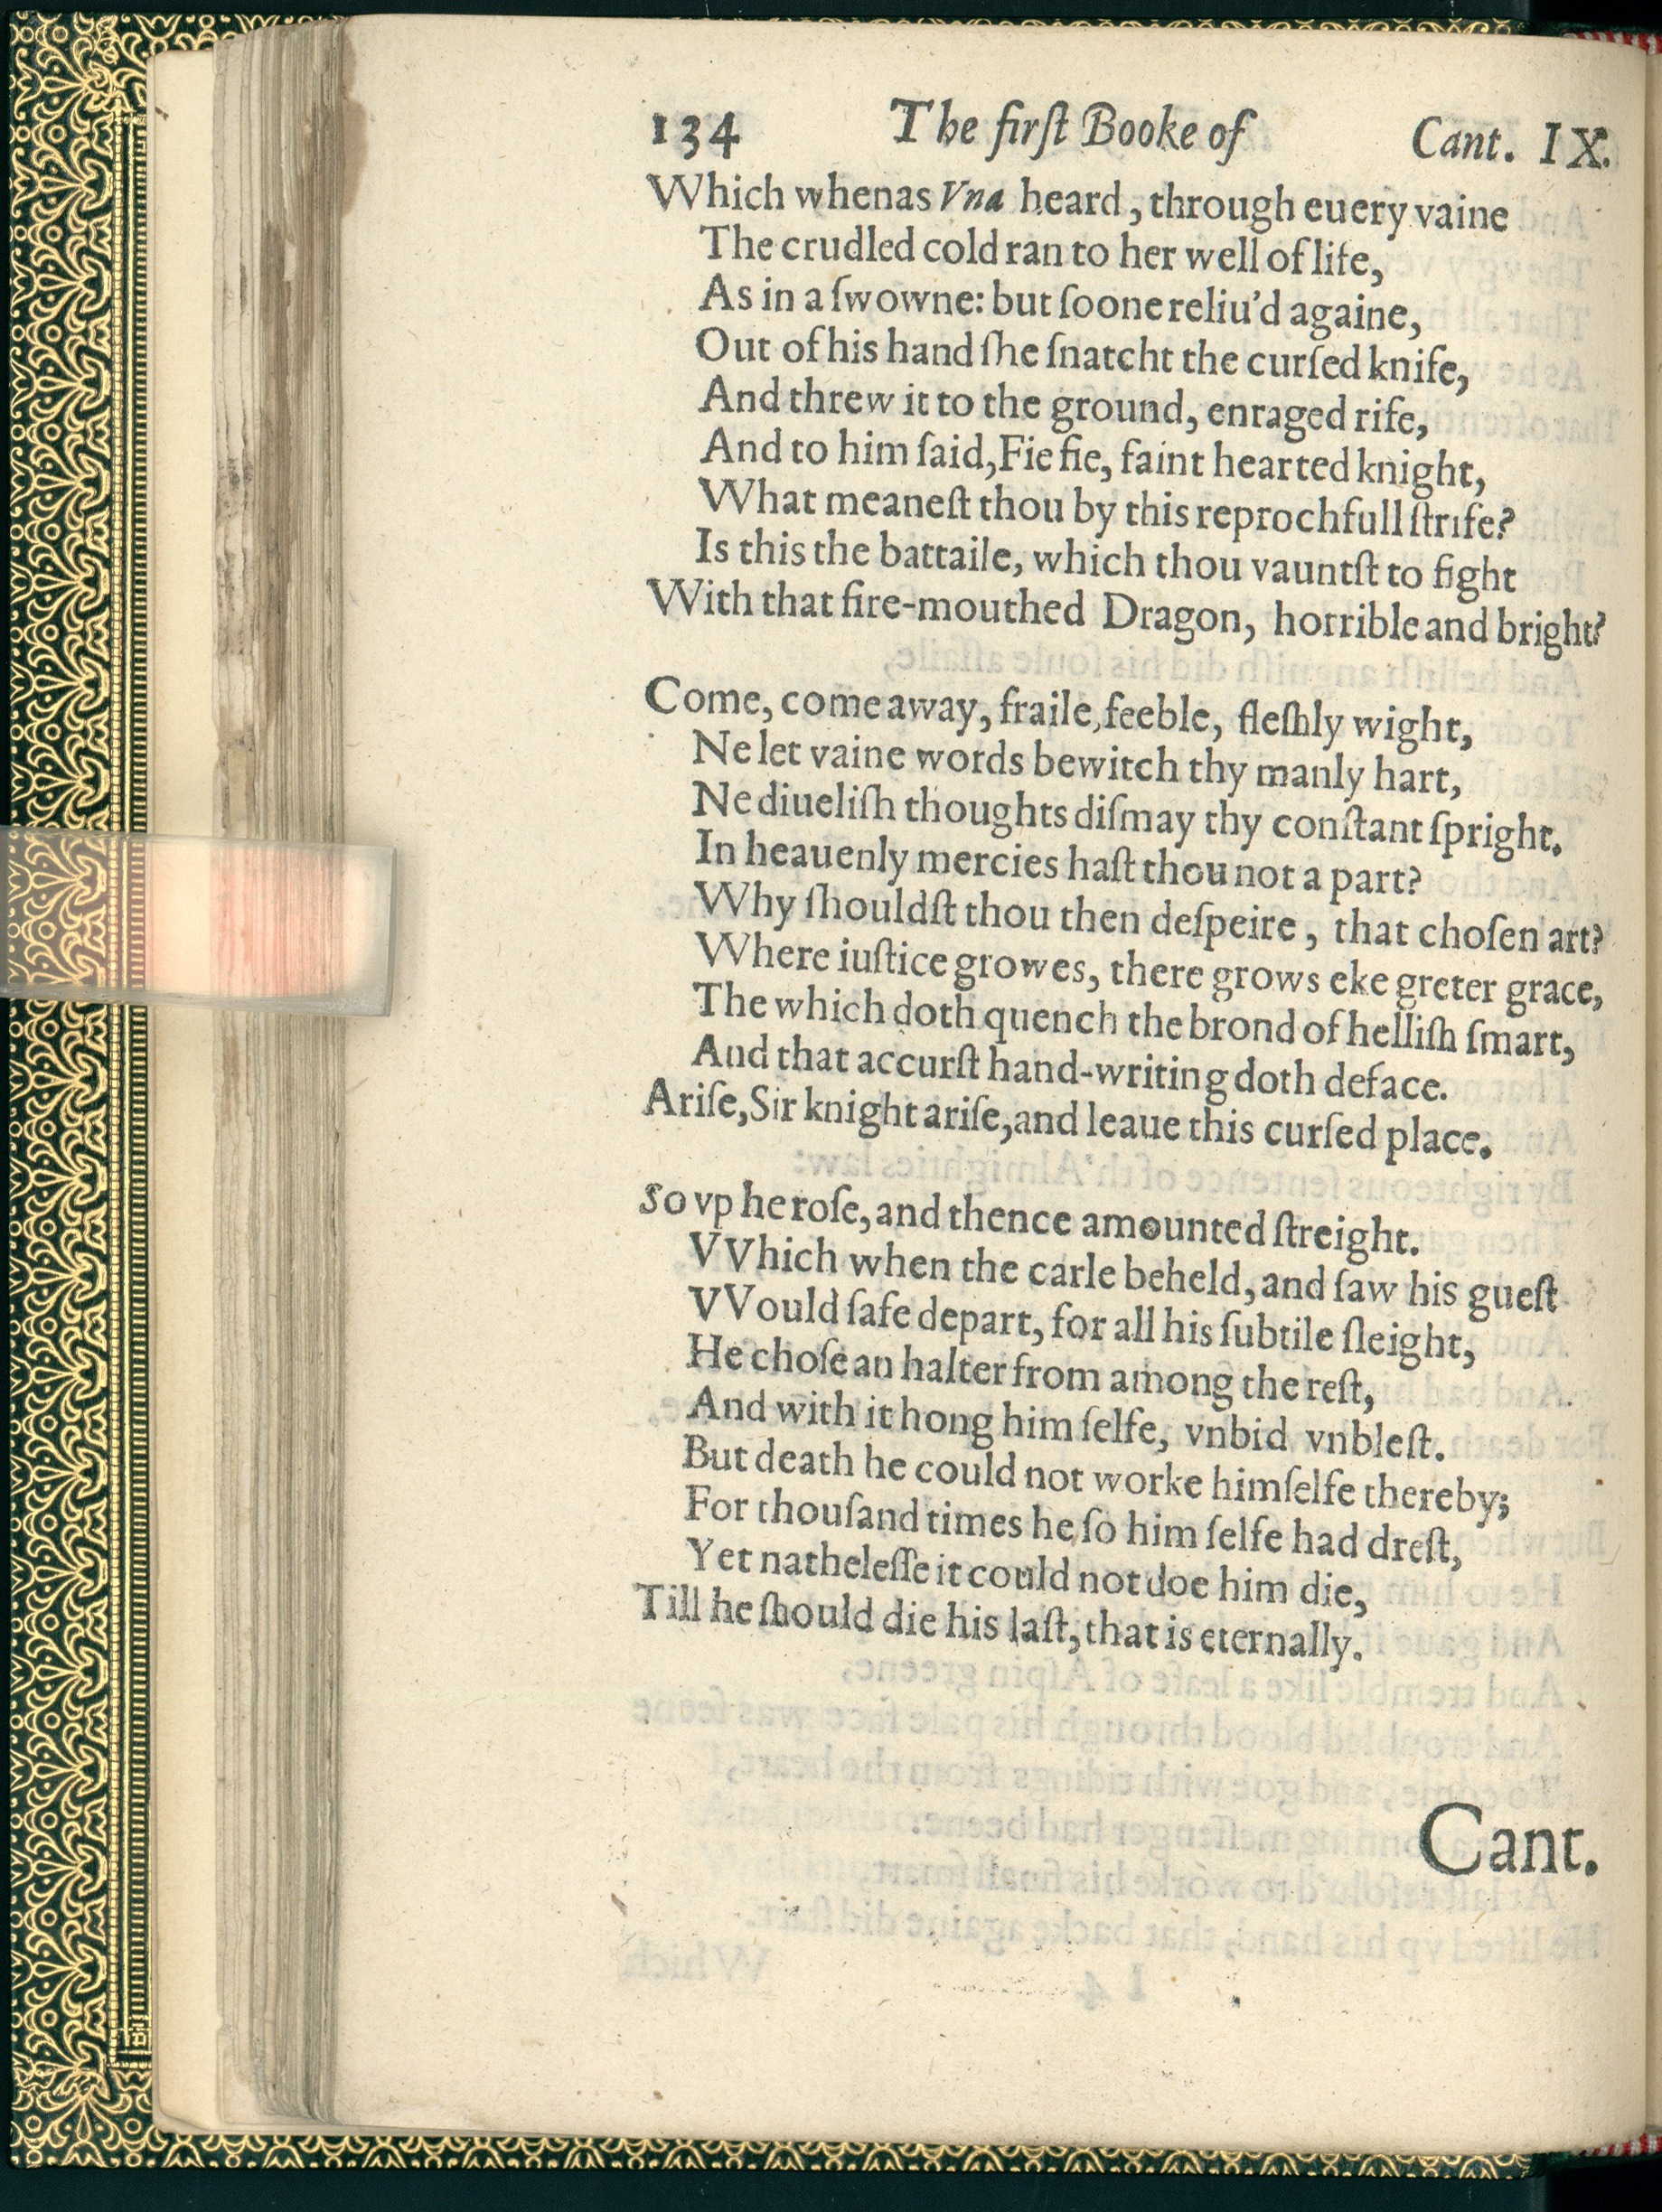 134 The firſt Booke of Cant. IX.
Which whenas Vna heard, through euery vaine
The crudled cold ran to her well of life,
As in a ſwowne: but ſoone reliu'd againe,
Out of his hand ſhe ſnatcht the curſed knife,
And threw it to the ground, enraged rife,
And to him ſaid, Fie fie, faint hearted knight,
What meaneſt thou by this reprochfull ſtrife?
Is this the battaile, which thou vauntſt to fight
With that fire-mouthed Dragon, horrible and bright?
Come, come away, fraile, feeble, fleſhly wight,
Ne let vaine words bewitch thy manly hart,
Ne diueliſh thoughts diſmay thy conſtant ſpright.
In heauenly mercies haſt thou not a part?
Why ſhouldſt thou then deſpeire, that choſen art?
Where iuſtice growes, there grows eke greter grace,
The which doth quench the brond of helliſh ſmart,
And that accurſt hand-writing doth deface.
Ariſe, Sir knight ariſe, and leaue this curſed place.
So vp he roſe, and thence amounted ſtreight.
VVhich when the carle beheld, and ſaw his gueſt
VVould ſafe depart, for all his ſubtile ſleight,
He choſe an halter from among the reſt,
And with it hong him ſelfe, vnbid vnbleſt.
But death he could not worke himſelfe thereby;
For thouſand times he ſo him ſelfe had dreſt,
Yet natheleſſe it could not doe him die,
Till he ſhould die his laſt, that is eternally.
Cant.